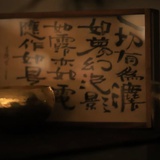 一切有為灋
如夢幻泡影
如露亦如電
應作如是